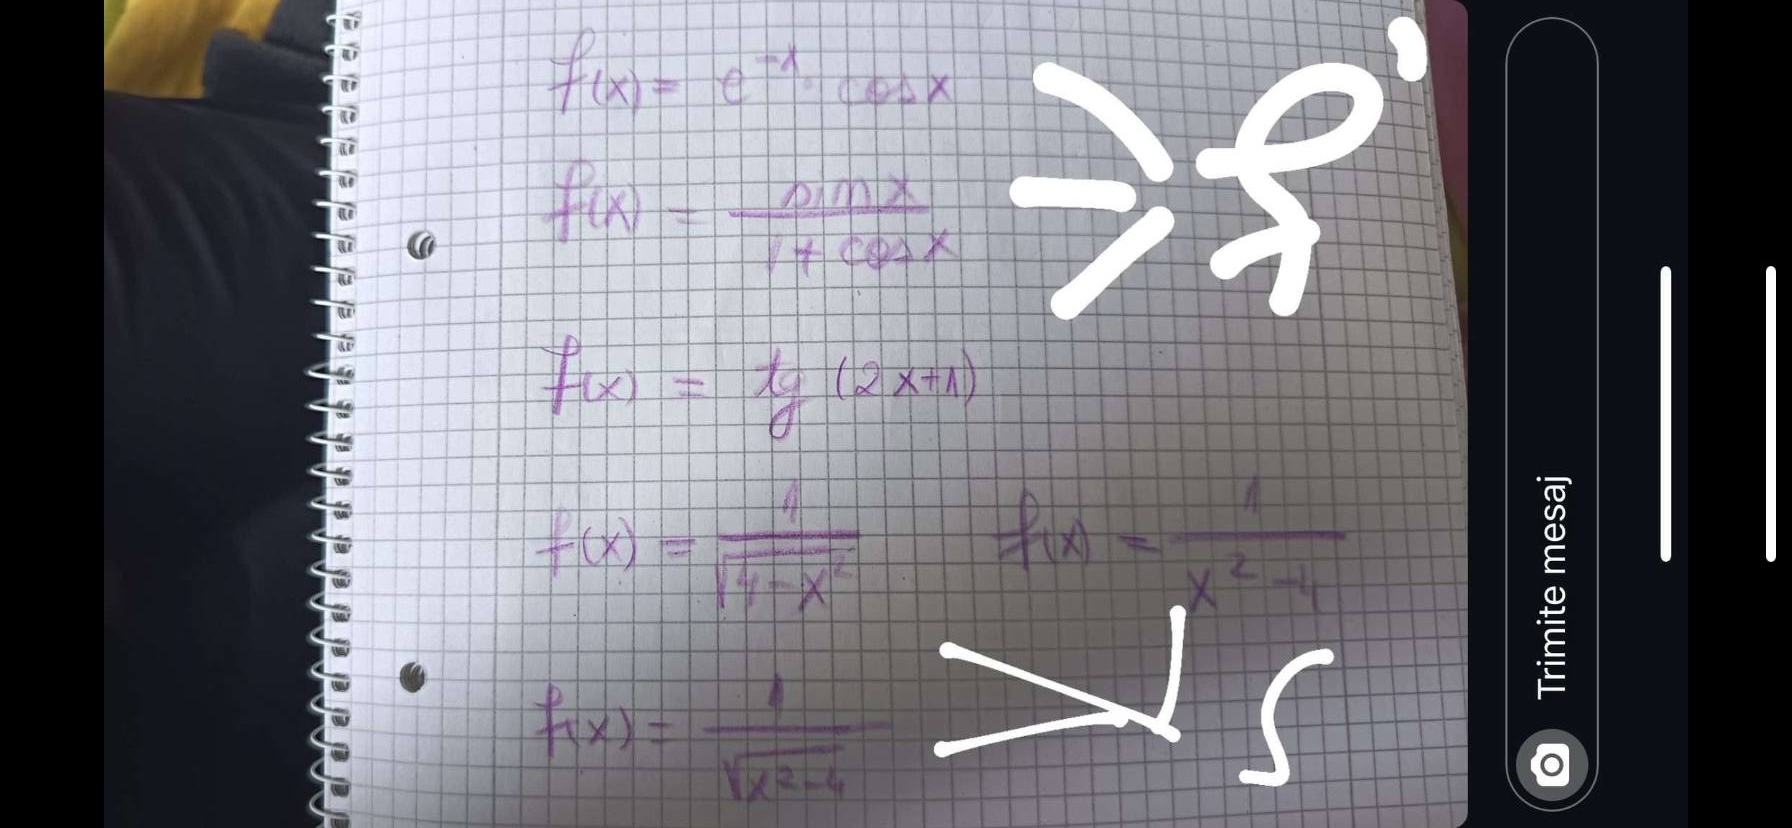 f(x) = e^-x · cos x
f(x) = sin x / 1 + cos x
f'
f(x) = tg (2x+1)
f(x) = 1 / √4-x² f(x) = 1 / x²-4
f(x) = 1 / √x²-4
∫
Trimite mesaj